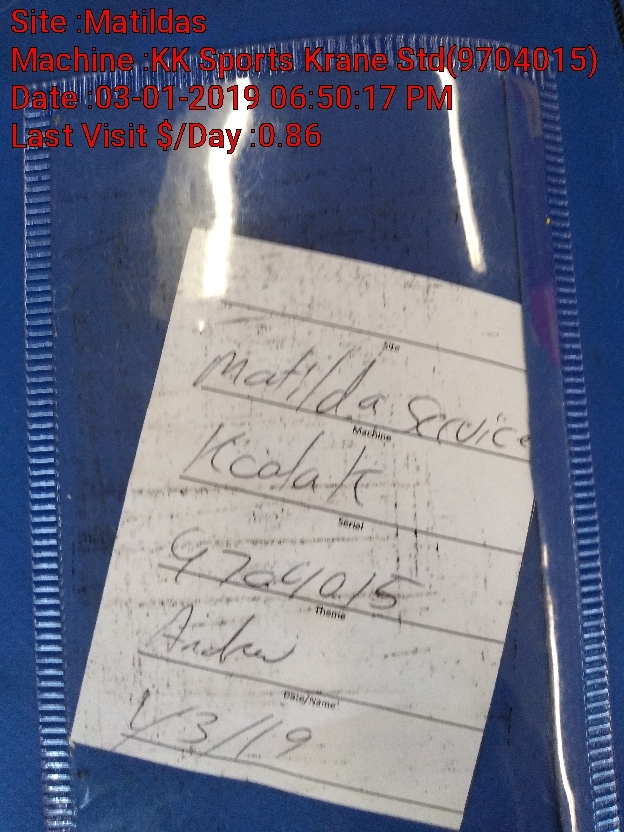 Site :Matildas
Machine :KK Sports Krane Std(9704015)
Date :03-01-2019 06:50:17 PM
Last Visit $/Day :0.86
Site
Matilda Service
Machine
Serial
9704015
Theme
Andrew
Date/Name
1/3/19